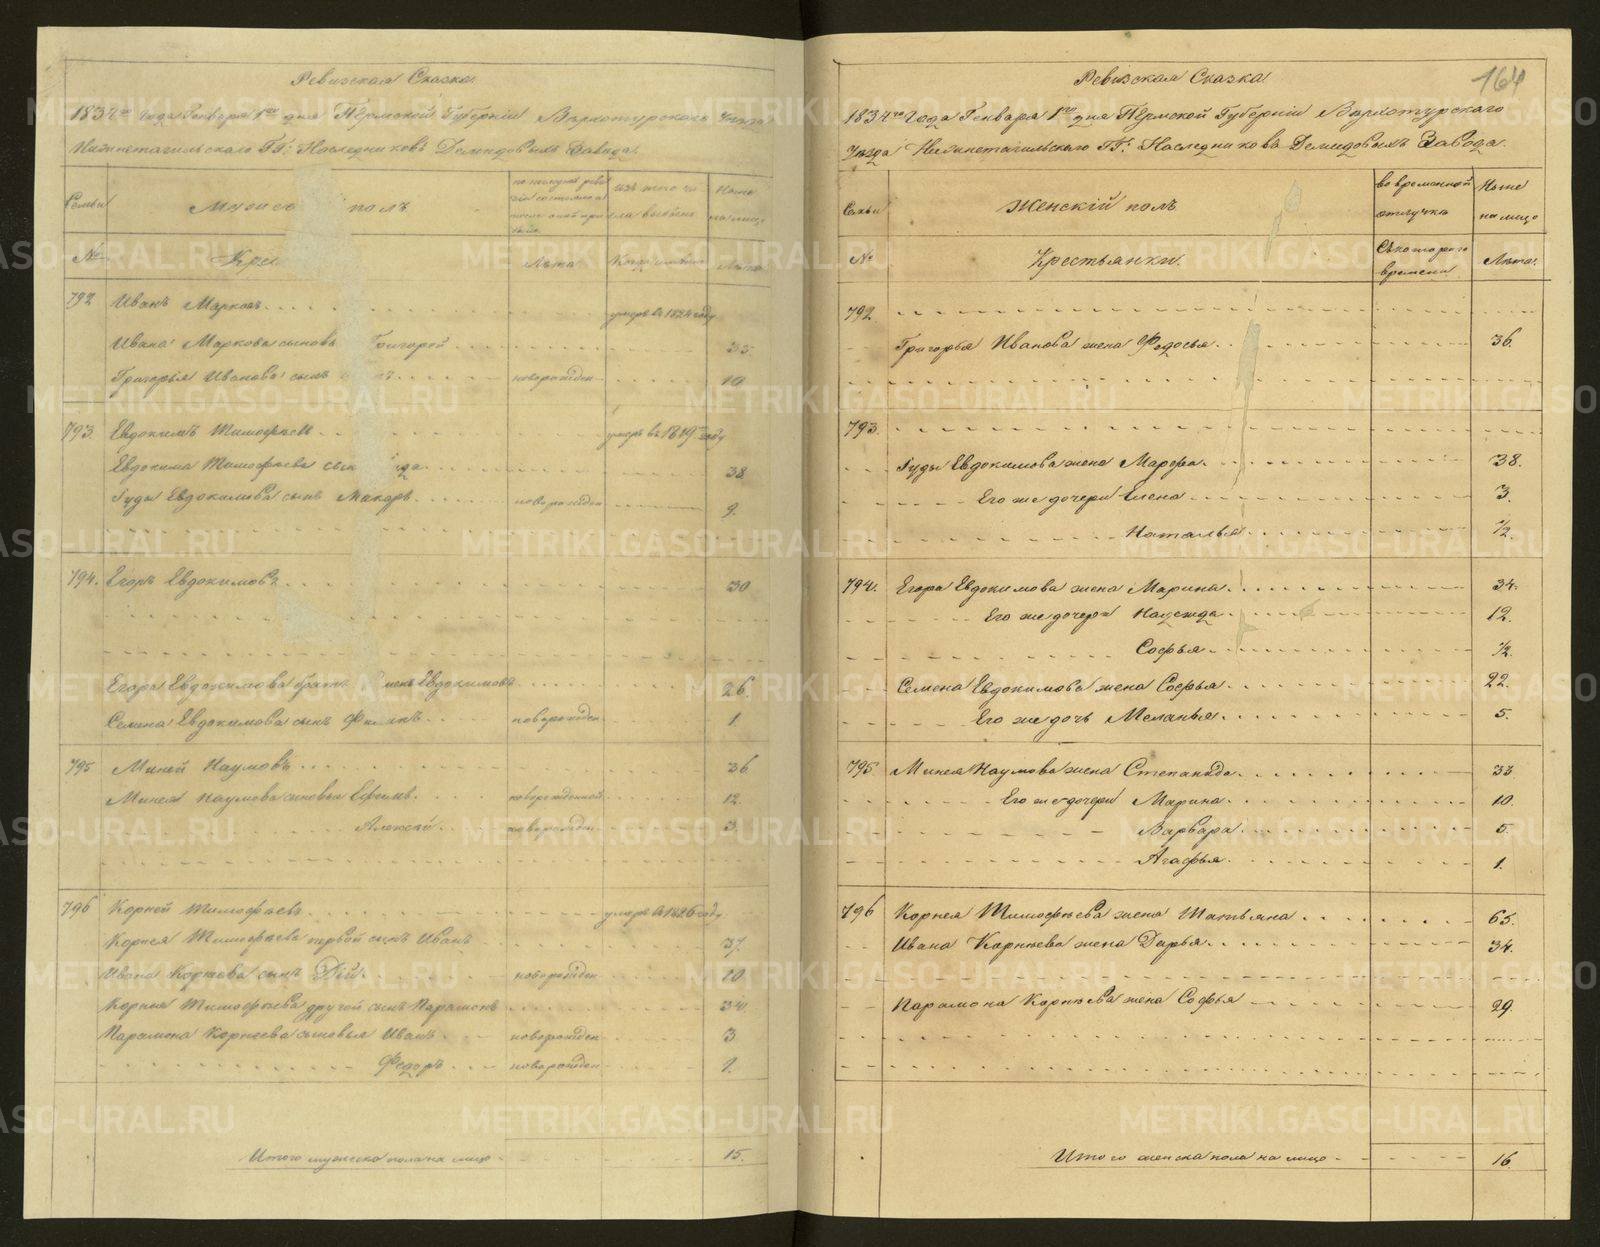 Ревизская Сказка
1834го Года Генваря 1го дня Пермской Губернии Верхотурскаго Уѣзда
Нижнетагильскаго ГГ: Наследниковъ Демидовыхъ Завода.
Семьи
полъ
Ныне на лицо
№
Кре
Лѣта
Лѣта
792 Иванъ Марковъ умеръ въ 1824 году
Ивана Маркова сыновъ Григорей 35
Григорья Иванова сынъ новорожден 10
793. Евдокимъ Тимофѣевъ умеръ въ 1819 году
Евдокима Тимофѣева сын 38
Гуды Евдокимова сынъ Макаръ новорожден 9.
794. Егоръ Евдокимовъ 30
Егора Евдокимова братъ Евдокимовъ 26.
Семена Евдокимова сынъ новорожден 1.
795 Миней Наумовъ 36
Минея Наумова сыновья Ефимъ новорожденной 12.
Алексей новорожден 3.
796 Корней Тимофѣевъ умеръ въ 1826 году
Корнея Тимофѣева первой сынъ Иванъ 37.
Ивана Корнѣева сынъ новорожден 10
Корнея Тимофѣева другой сынъ Парамонъ 34.
Парамона Корнѣева сыновья Иванъ новорожден 3
Федоръ новорожден 1.
Итого мужеска пола на лицо 15.
164
Ревизская Сказка
1834го Года Генваря 1го дня Пермской Губернии Верхотурскаго
Уѣзда Нижнетагильскаго ГГ: Наследниковъ Демидовыхъ Завода.
Семьи
Женскій полъ
во временной отлучке
Ныне на лицо
№
Крестьянки.
Съ котораго времени
Лѣта.
792.
Григорья Иванова жена Федосья 36.
793.
Гуды Евдокимова жена Марфа 38.
Его же дочери Елена 3.
Наталья 1/2.
794. Егора Евдокимова жена Марина 34.
Его же дочери Надежда 12.
Софья 1/2.
Семена Евдокимова жена Софья 22.
Его же дочь Меланья 5.
795 Минея Наумова жена Степанида 33
Его же дочери Марина 10.
Варвара 5.
Агафья 1.
796 Корнея Тимофѣева жена Татьяна 65.
Ивана Корнѣева жена Дарья 34.
Парамона Корнѣева жена Софья 29.
Итого женска пола на лицо 16.
METRIKI.GASO-URAL.RU